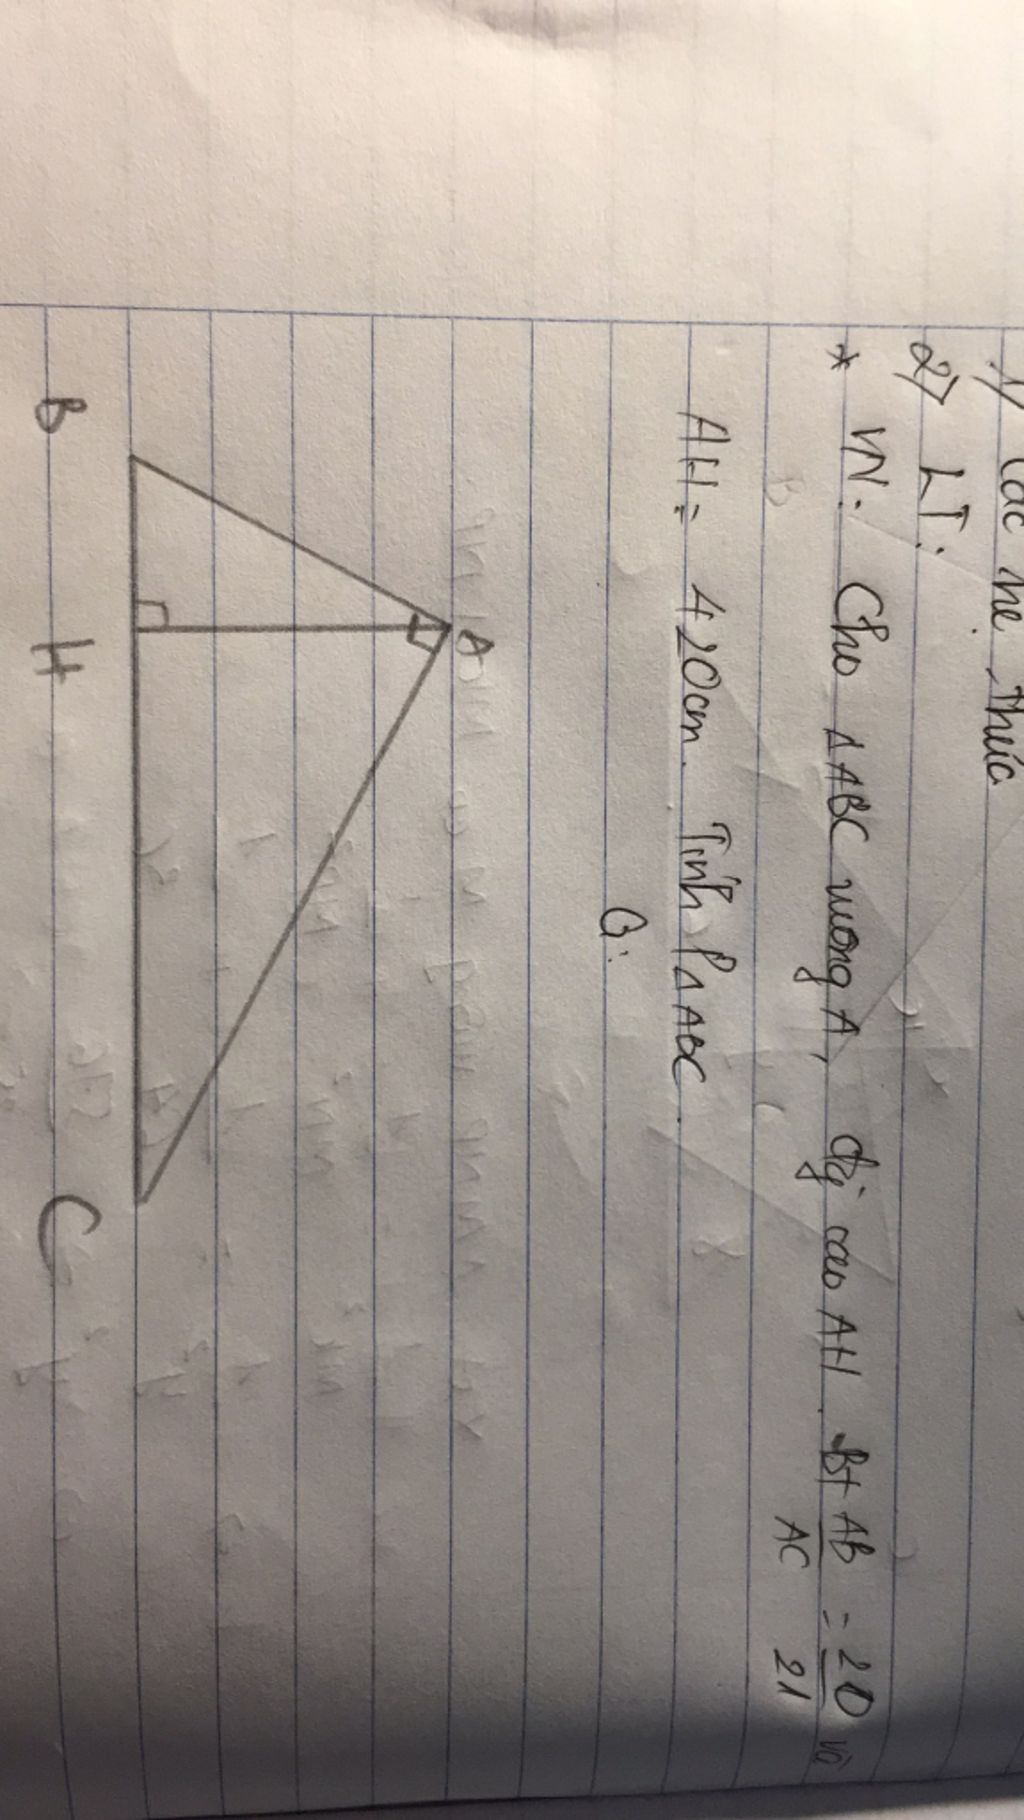 1) Các hệ thức
2) LT:
* VN: Cho ΔABC vuông A, đg cao AH. Bt AB/AC = 20/21 và
AH = 420cm. Tính PΔABC.
G:
A
B H C